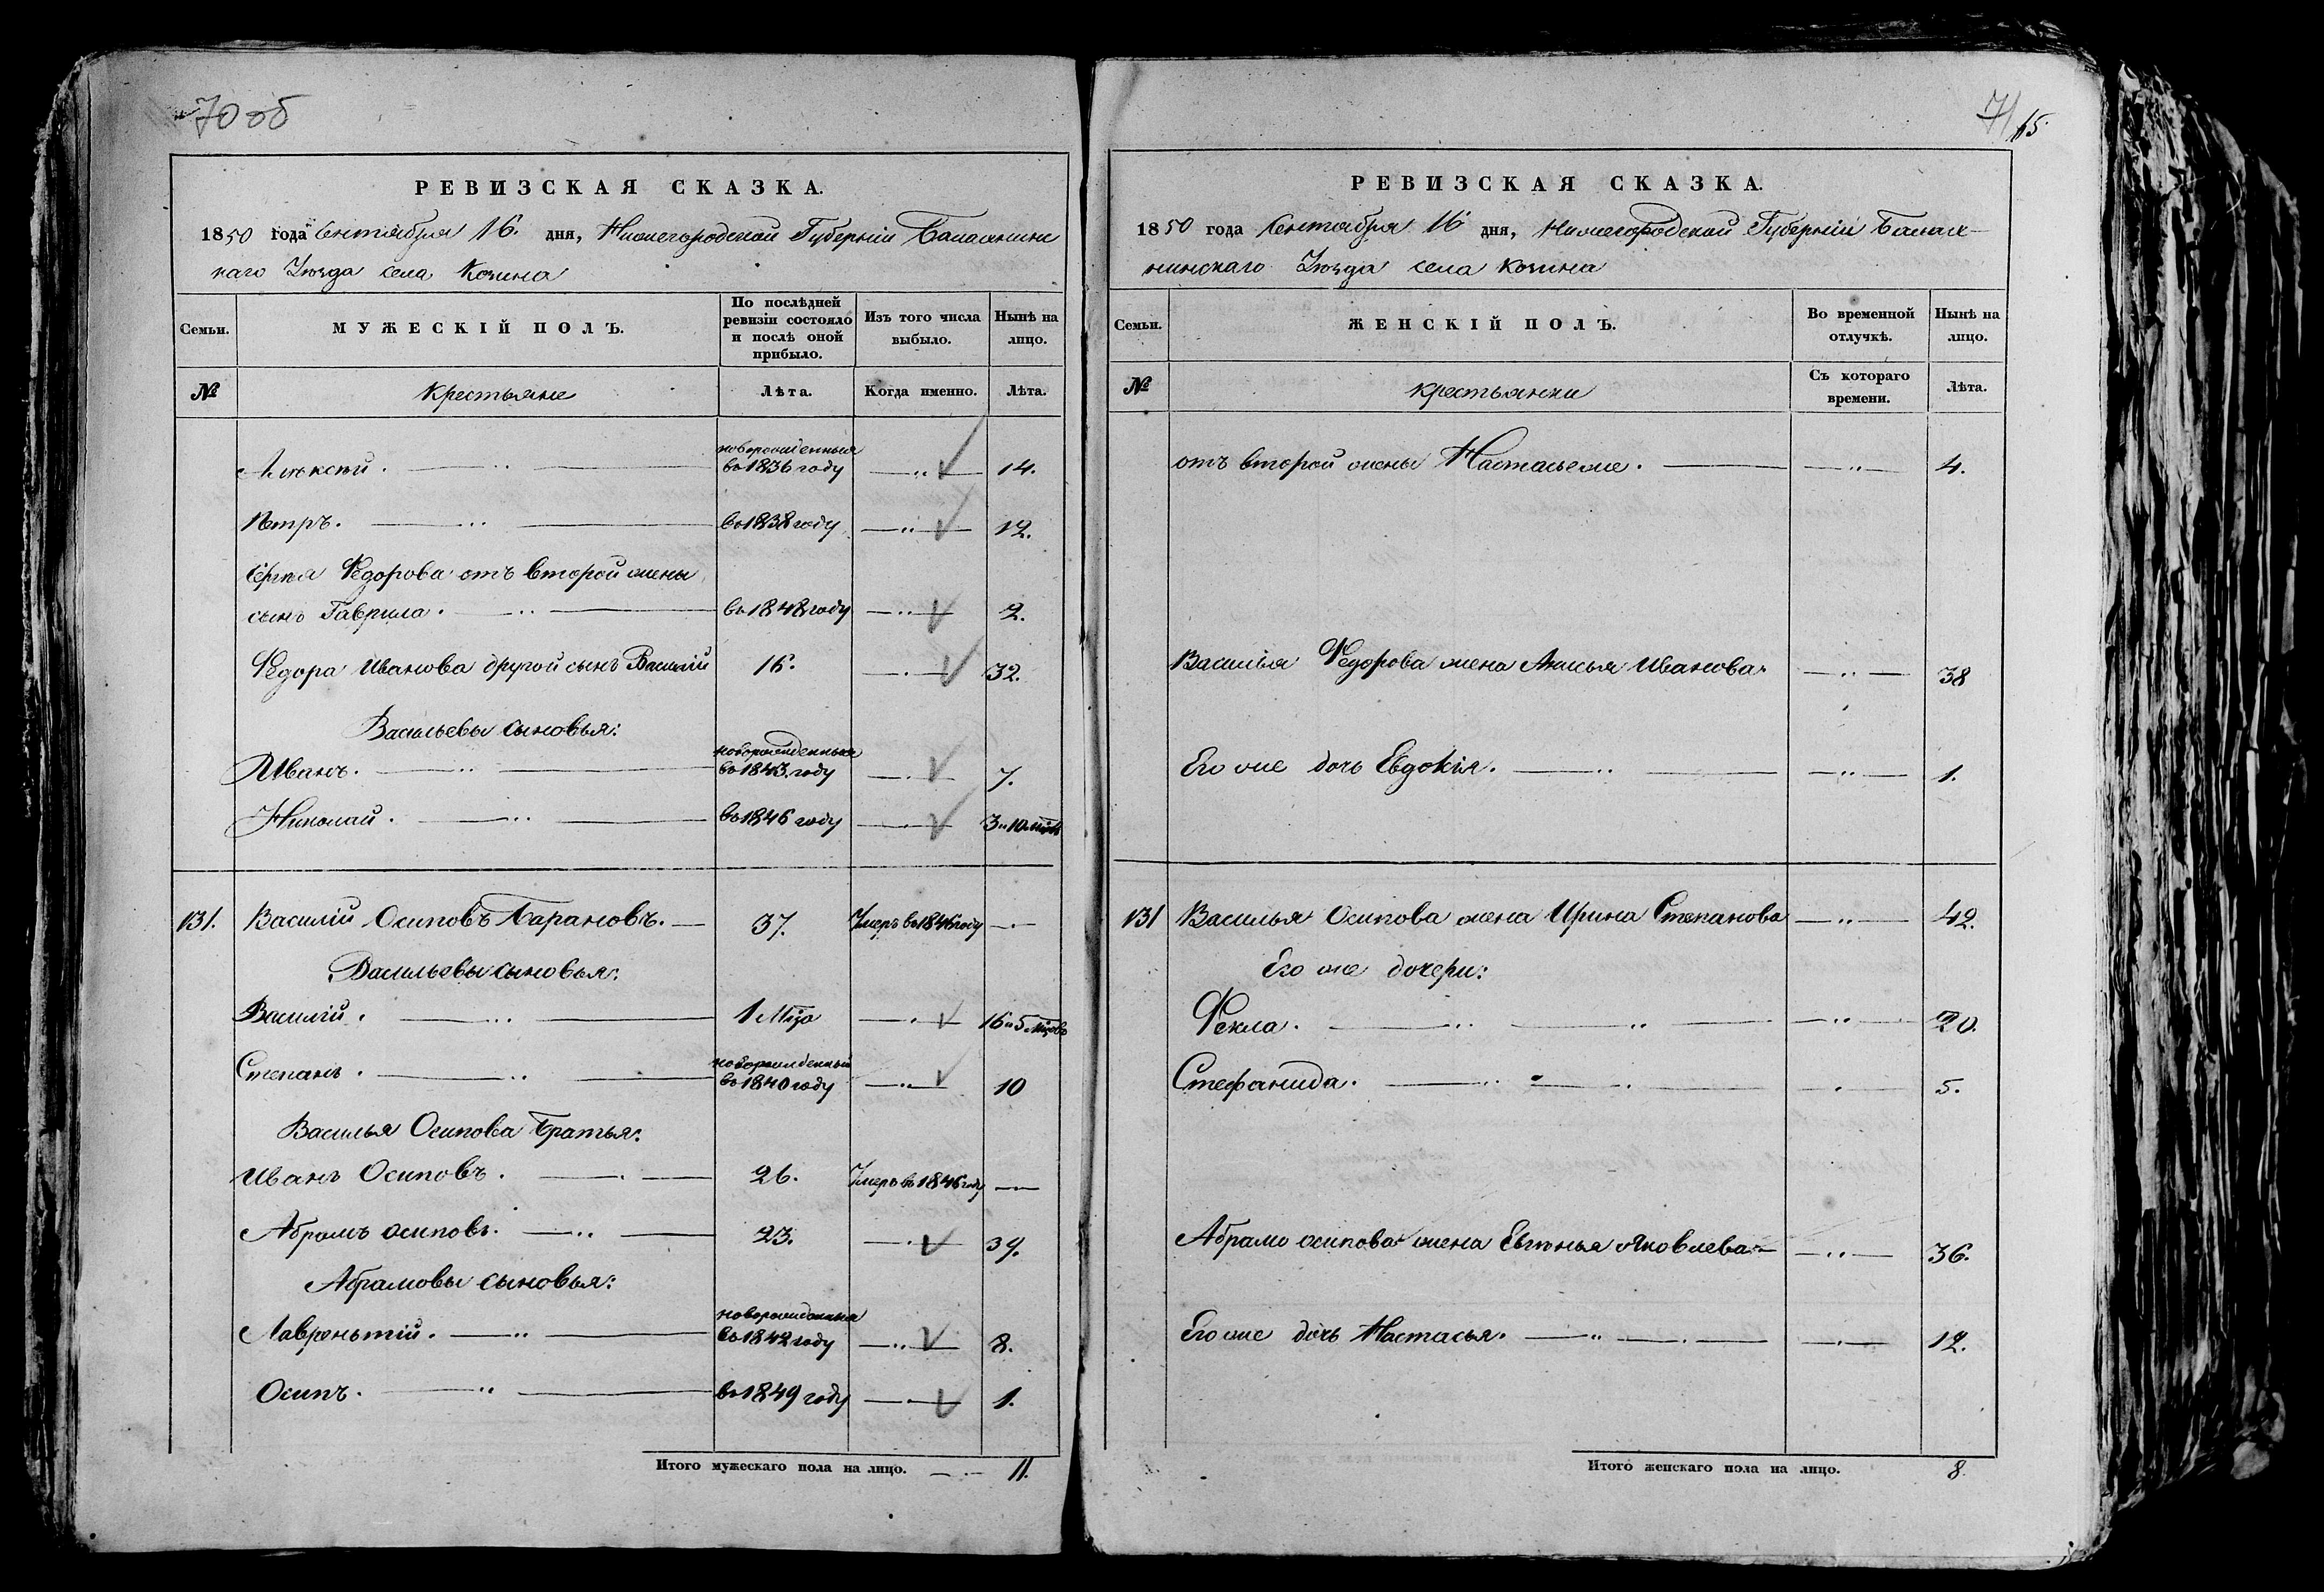 70 об
РЕВИЗСКАЯ СКАЗКА.
1850 года Сентября 16. дня, Нижегородской Губерніи Балахнинс
каго Уѣзда села Козина
Семьи.
МУЖЕСКІЙ ПОЛЪ.
По послѣдней ревизіи состояло и послѣ оной прибыло.
Изъ того числа выбыло.
Нынѣ на лицо.
№
Крестьяне
Лѣта.
Когда именно.
Лѣта.
новорожденныя
Алексѣй. въ 1836 году 14.
Петръ. въ 1838 году 12.
Сергѣя Ѳедорова отъ второй жены
сынъ Гаврила. въ 1848 году 2.
Ѳедора Иванова другой сынъ Василій 16. 32.
Васильевы сыновья:
новорожденныя
Иванъ. въ 1843 году 7.
Николай. въ 1846 году 3 и 10 мцов
131. Василій Осиповъ Барановъ. 37. Умеръ въ 1846 году
Васильевы сыновья:
Василій. 1 Мца 16 и 5 мцовъ
новорожденный
Степанъ. въ 1840 году 10
Василья Осипова Братья:
Иванъ Осиповъ. 26. Умеръ въ 1846 году
Абрамъ Осиповъ. 23. 39.
Абрамовы сыновья:
новорожденныя
Лаврентій. въ 1842 году 8.
Осипъ. въ 1849 году 1.
Итого мужескаго пола на лицо. 11.
71
15
РЕВИЗСКАЯ СКАЗКА.
1850 года Сентября 16 дня, Нижегородской Губерніи Балах-
нинскаго Уѣзда села Козина
Семьи.
ЖЕНСКІЙ ПОЛЪ.
Во временной отлучкѣ.
Нынѣ на лицо.
№
Крестьянки
Съ котораго времени.
Лѣта.
отъ второй жены 4.
Василья Ѳедорова жена Анисья Иванова. 38
Его же дочь Евдокія. 1.
131 Василья Осипова жена Ирина Степанова 42.
Его же дочери:
Ѳекла. 20.
Стефанида. 5.
Абрама Осипова жена Евгенья Яковлева 36.
Его же дочь Настасья. 12.
Итого женскаго пола на лицо. 8.